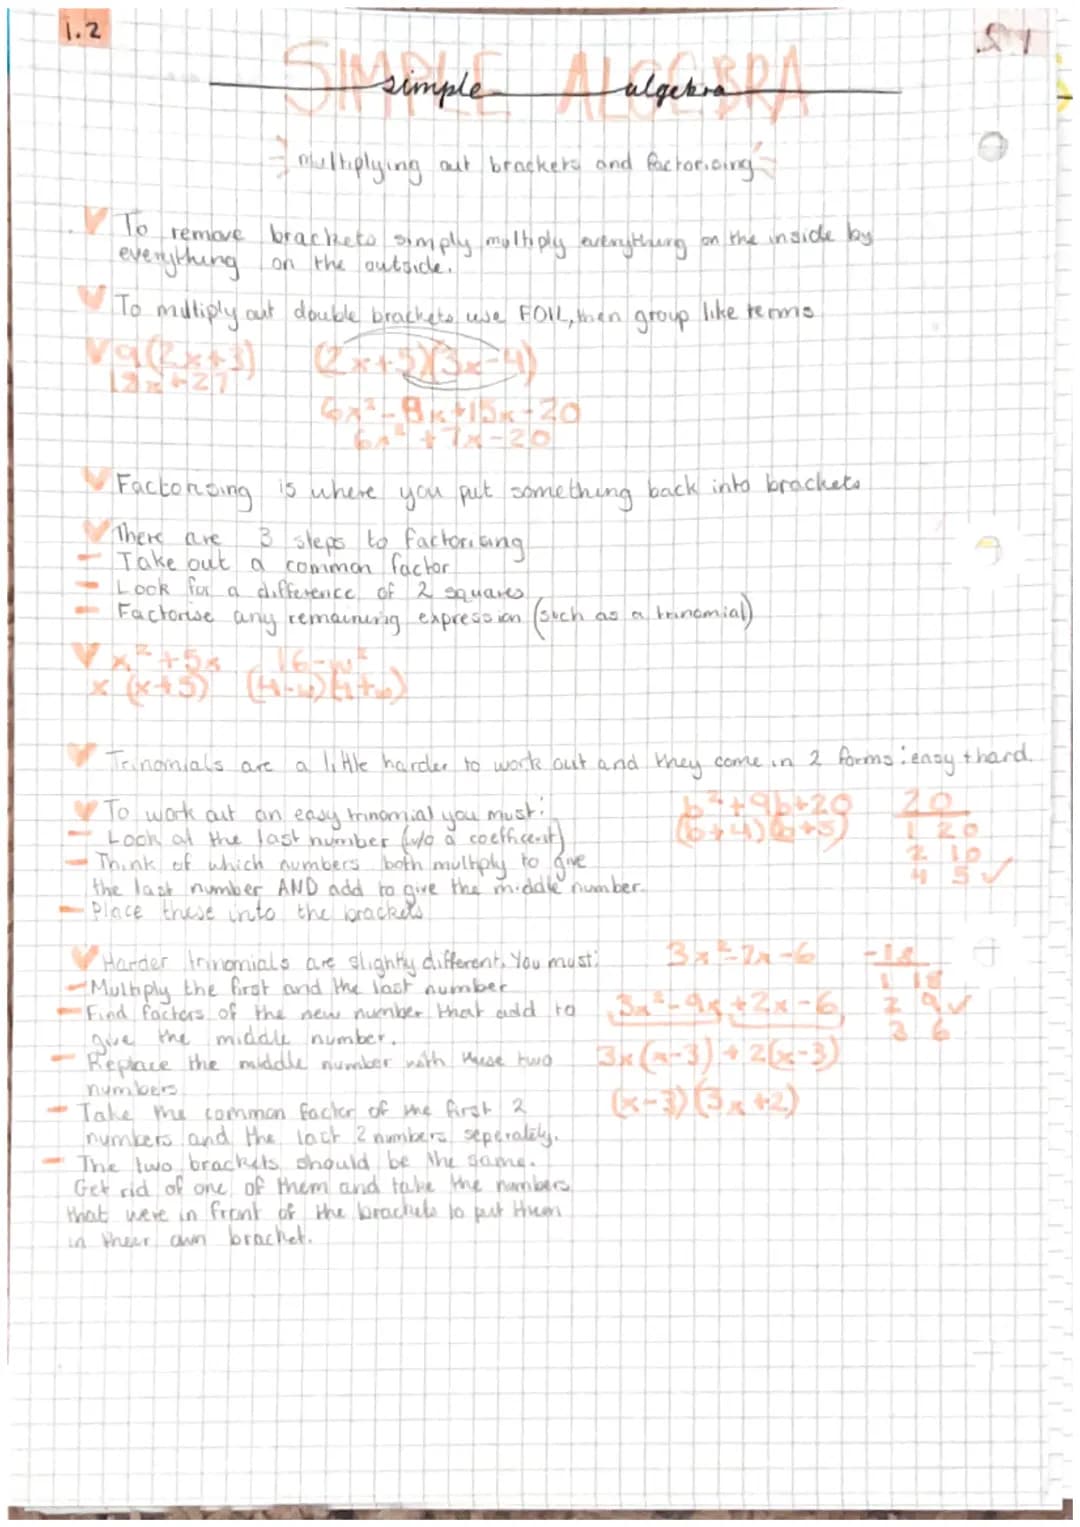 1.2
SIMPLE ALGEBRA
simple algebra
multiplying out brackets and factorising
To remove brackets simply multiply everything on the inside by
everything on the outside.
To multiply out double brackets use FOIL, then group like terms
9(2x+3) (2x+5)(3x-4)
18x+27
6x²-8x+15x-20
6x²+7x-20
Factorising is where you put something back into brackets
There are 3 steps to factorising
- Take out a common factor
- Look for a difference of 2 squares
- Factorise any remaining expression (such as a trinomial)
x²+5x 16-w²
x(x+5) (4-w)(4+w)
Trinomials are a little harder to work out and they come in 2 forms: easy + hard.
To work out an easy trinomial you must: b²+9b+20 20
- Look at the last number (w/o a coefficent) (b+4)(b+5) 1 20
- Think of which numbers both multiply to give 2 10
the last number AND add to give the middle number. 4 5 ✓
- Place these into the brackets
Harder trinomials are slightly different. You must: 3x²-7x-6 -18
- Multiply the first and the last number 1 18
- Find factors of the new number that add to 3x²-9x+2x-6 2 9 ✓
give the middle number. 3 6
- Replace the middle number with these two 3x(x-3)+2(x-3)
numbers
- Take the common factor of the first 2 (x-3)(3x+2)
numbers and the last 2 numbers seperately.
- The two brackets should be the same.
Get rid of one of them and take the numbers
that were in front of the brackets to put them
in their own bracket.